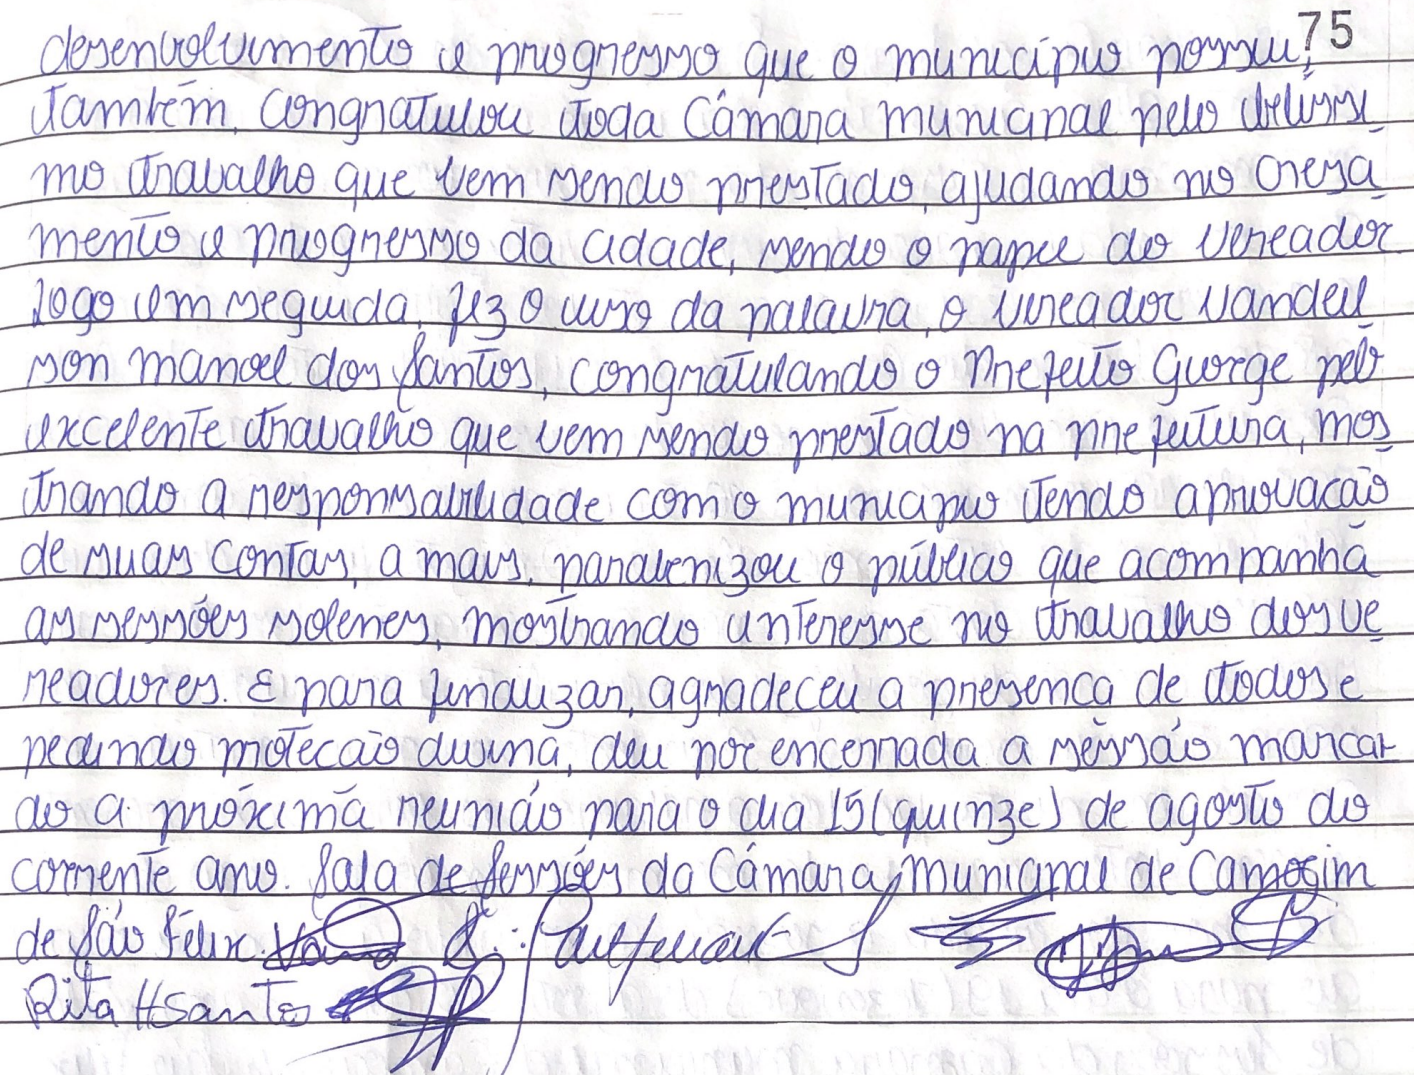 75
desenvolvimento e progresso que o município possui,
também, congratulou toda Câmara municipal pelo belissi
mo trabalho que vem sendo prestado, ajudando no cresci
mento e progresso da cidade, sendo o papel do vereador
logo em seguida, fez o uso da palavra, o vereador Vandeil
son manoel dos Santos, congratulando o Prefeito George pelo
excelente trabalho que vem sendo prestado na prefeitura, mos
trando a responsabilidade com o município tendo aprovacão
de suas contas, a mais, parabenizou o público que acompanha
as sessões solenes, mostrando interesse no trabalho dos ve
readores. E para finalizar, agradeceu a presença de todos e
pedindo proteção divina, deu por encerrada a sessão marcan
do a próxima reunião para o dia 15 (quinze) de agosto do
corrente ano. Sala de Sessões da Câmara Municipal de Camocim
de São Félix.
Rita H Santos